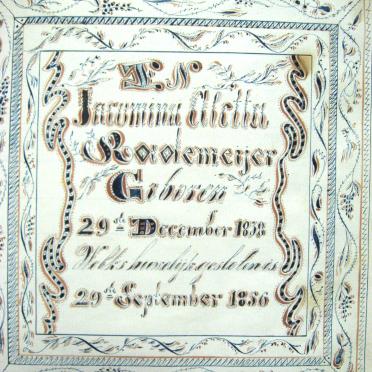 EN
Jacomina Aletta
Rademeijer
Geboren
29ste December 1838
Welks huwelijk gesloten is
29ste September 1856